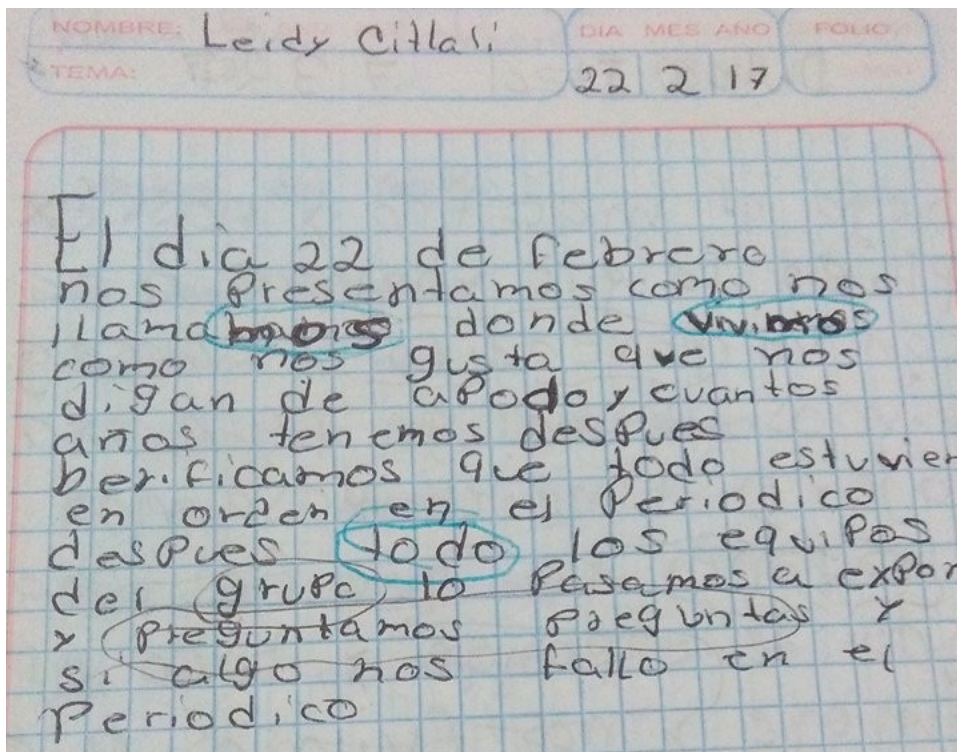 NOMBRE: Leidy Citlali DIA MES AÑO FOLIO:
TEMA: 22 2 17
El dia 22 de febrero
nos presentamos como nos
llama donde vivimos
como nos gusta que nos
digan de apodo y cuantos
años tenemos despues
berificamos que todo estuvier
en orden en el Periodico
despues todo los equipos
del grupo lo pasamos a expor
y preguntamos preguntas y
si algo nos fallo en el
Periodico